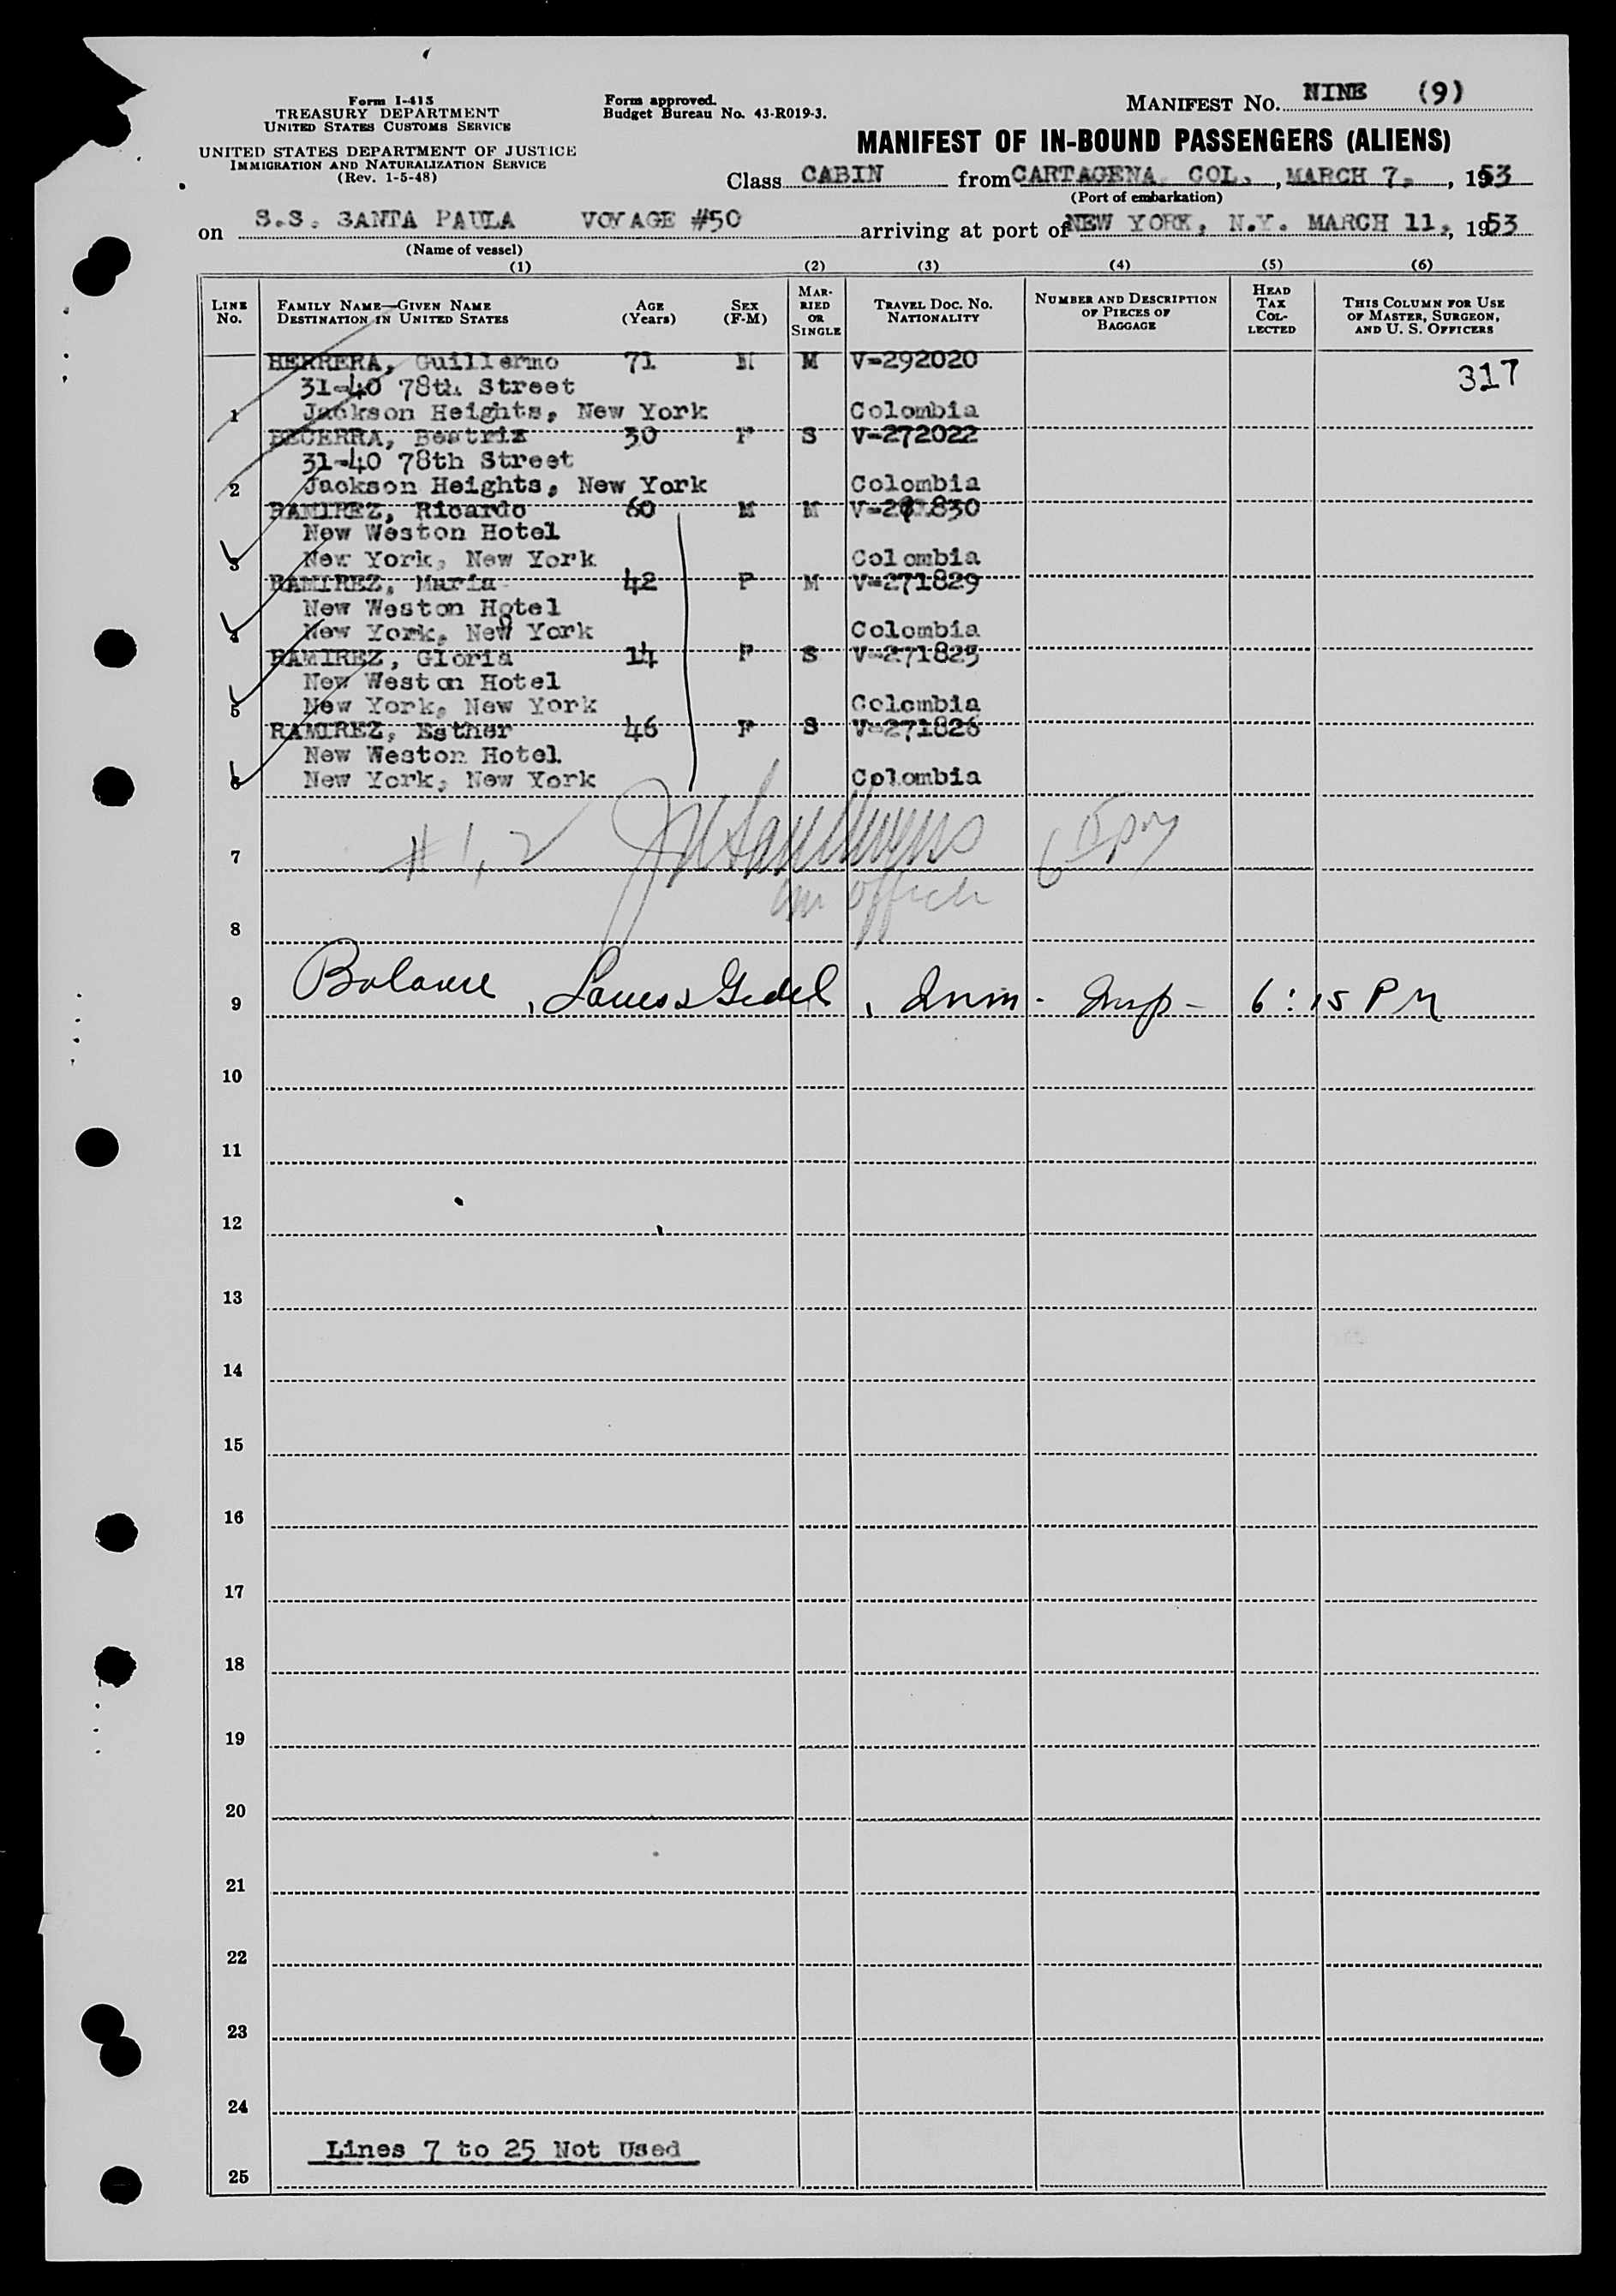 Form I-415
TREASURY DEPARTMENT
UNITED STATES CUSTOMS SERVICE
UNITED STATES DEPARTMENT OF JUSTICE
IMMIGRATION AND NATURALIZATION SERVICE
(Rev. 1-5-48)
Form approved.
Budget Bureau No. 43-R019-3.
MANIFEST NO. NINE (9)
MANIFEST OF IN-BOUND PASSENGERS (ALIENS)
Class CABIN from CARTAGENA COL., MARCH 7, 1953
(Port of embarkation)
on S.S. SANTA PAULA VOYAGE #50 arriving at port of NEW YORK, N.Y. MARCH 11, 1953
(Name of vessel)
(1) (2) (3) (4) (5) (6)
LINE NO.
FAMILY NAME—GIVEN NAME
DESTINATION IN UNITED STATES
AGE (Years)
SEX (F-M)
MARRIED OR SINGLE
TRAVEL DOC. NO.
NATIONALITY
NUMBER AND DESCRIPTION OF PIECES OF BAGGAGE
HEAD TAX COLLECTED
THIS COLUMN FOR USE OF MASTER, SURGEON, AND U. S. OFFICERS
HERRERA, Guillermo 71 M M V-292020 317
31-40 78th Street
1 Jackson Heights, New York Colombia
BECERRA, Beatriz 30 F S V-272022
31-40 78th Street
2 Jackson Heights, New York Colombia
RAMIREZ, Ricardo 60 M M
New Weston Hotel
3 New York, New York Colombia
RAMIREZ, Maria 42 F M V-271829
New Weston Hotel
4 New York, New York Colombia
RAMIREZ, Gloria 14 F S V-271825
New Weston Hotel
5 New York, New York Colombia
RAMIREZ, Esther 46 F S V-271826
New Weston Hotel
6 New York, New York Colombia
7 #1, 2
8
9 Balance, Imm. Insp - 6:15 PM
10
11
12
13
14
15
16
17
18
19
20
21
22
23
24
Lines 7 to 25 Not Used
25